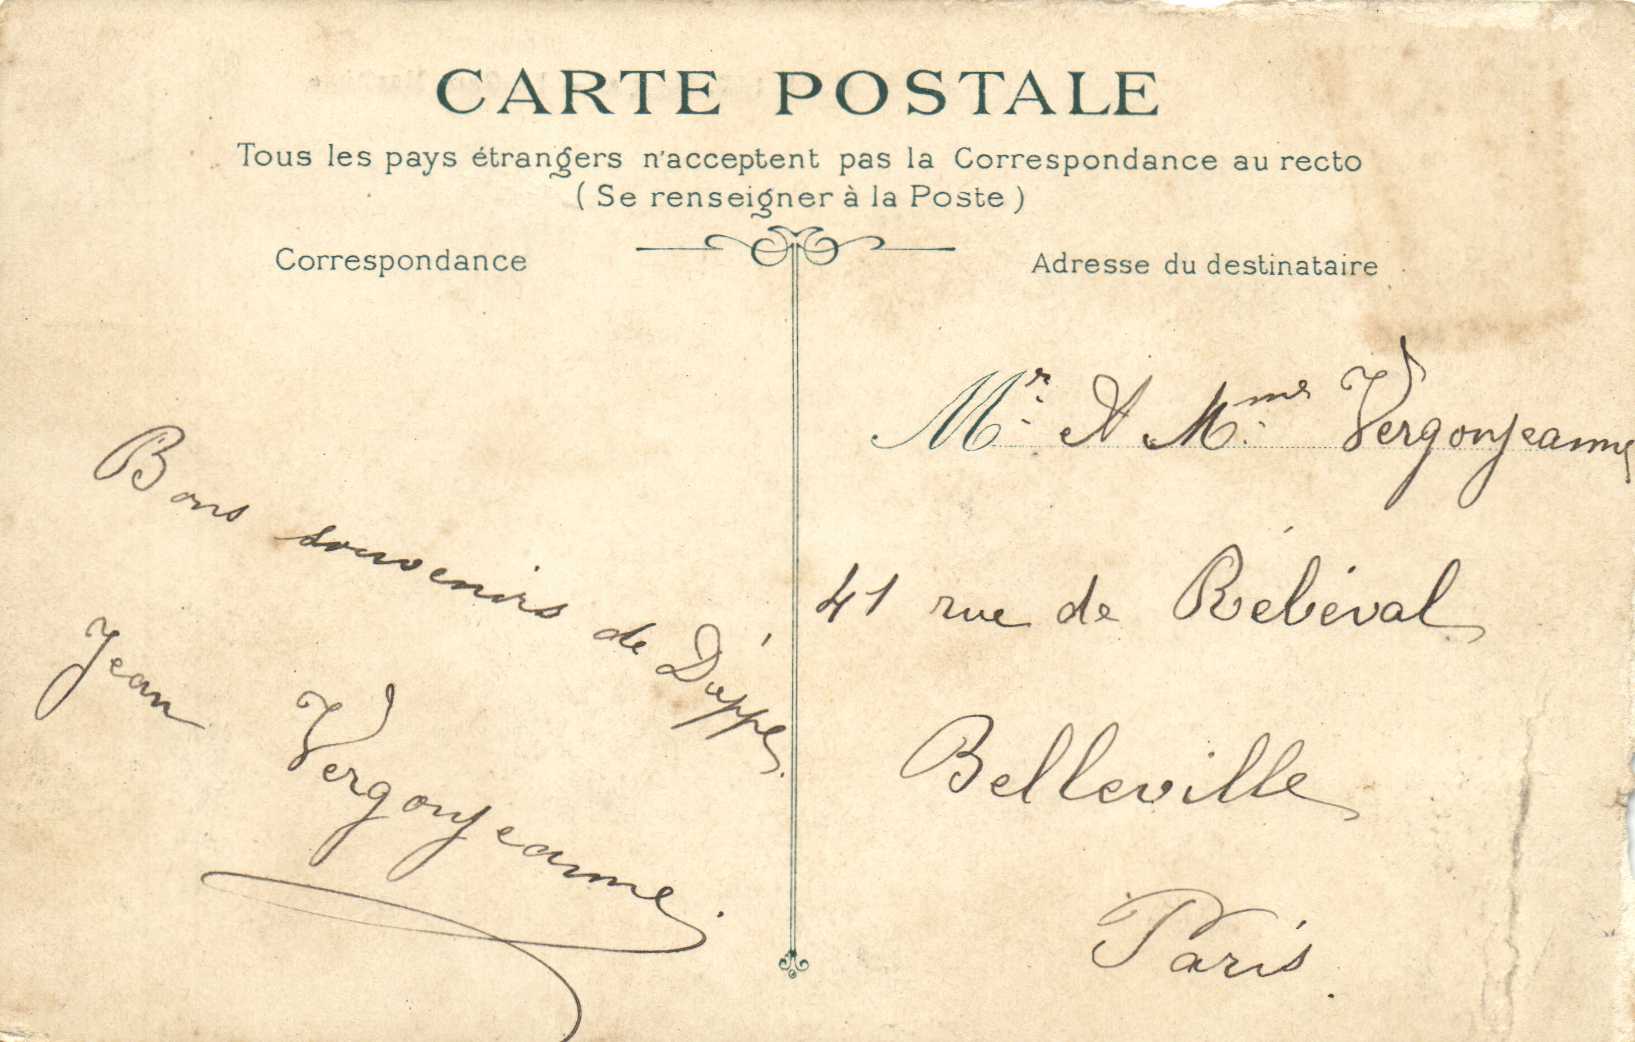 CARTE POSTALE
Tous les pays étrangers n'acceptent pas la Correspondance au recto
(Se renseigner à la Poste)
Correspondance
Bons souvenirs de Dieppe.
Jean Vergonjeanne.
Adresse du destinataire
Mr. & Mme. Vergonjeanne
41 rue de Rébéval
Belleville
Paris.